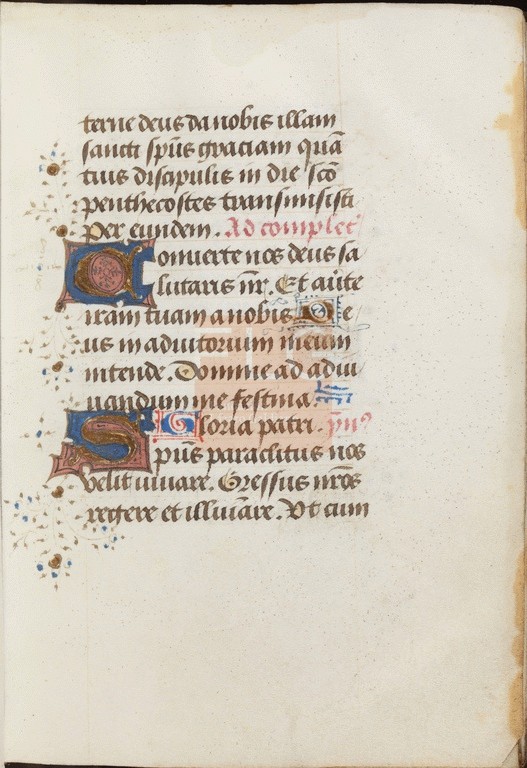 terne deus da nobis illam
sancti sp̄us graciam quā
tuis discipulis in die sc̄o
penthecostes transmisisti
per eundem. Ad complet̄
Conuerte nos deus sa
lutaris nr̄. Et aūte
iram tuam a nobis De
us in adiutorium meum
intende. Domine ad adiu
uandum me festina.
Gloria patri. ymꝰ
Sp̄us paraclitus nos
velit iuuare. Gressus nr̄os
regere et illuīare. Vt cum